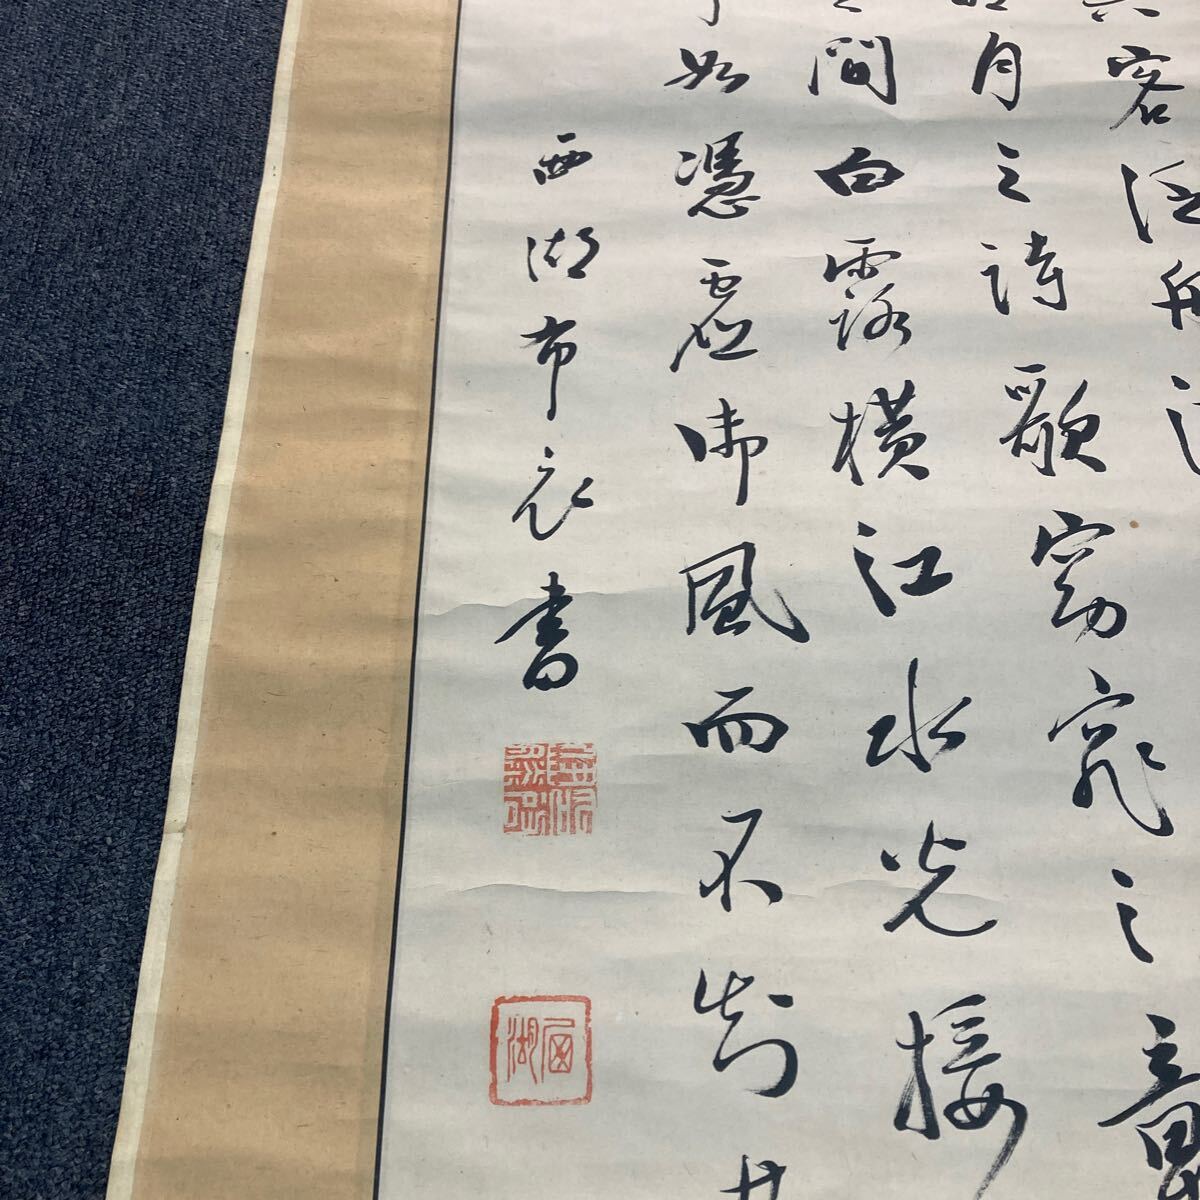 客泛舟
月之詩歌窈窕之章
間白露橫江水光接
如憑虛御風而不知其
西湖布衣書
西湖